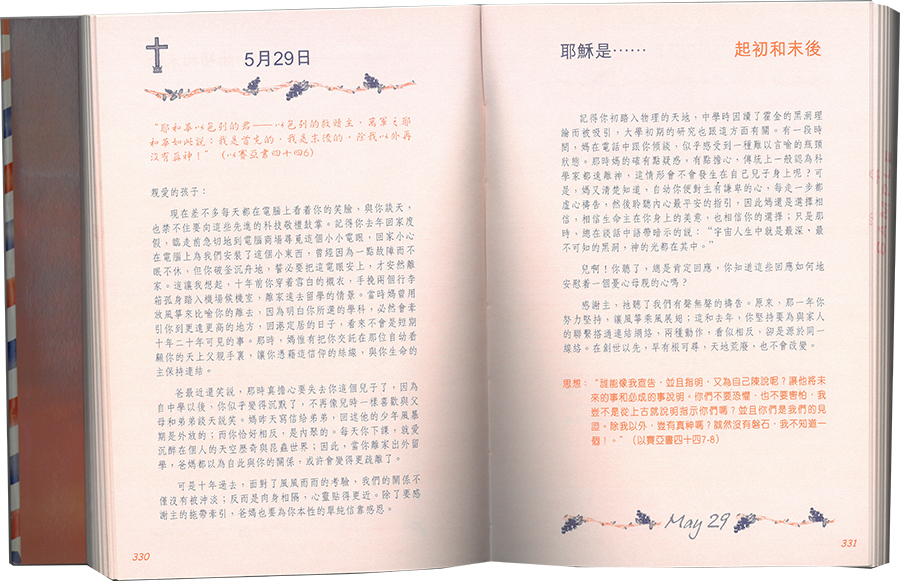 5月29日
“耶和華以色列的君——以色列的救贖主，萬軍之耶
和華如此說：我是首先的，我是末後的，除我以外再
沒有真神！”（以賽亞書四十四6）
親愛的孩子：
現在差不多每天都在電腦上看着你的笑臉，與你談天，
也禁不住要向這些先進的科技敬禮鼓掌。記得你去年回家度
假，臨走前急切地到電腦商場尋覓這個小小電眼，回家小心
在電腦上為我們安裝了這個小東西，曾經因為一點故障而不
眠不休，但你破釜沉舟地，誓必要把這電眼安上，才安然離
家。這讓我想起，十年前你穿着雪白的襯衣，手挽兩個行李
箱孤身踏入機場候機室，離家遠去留學的情景。當時媽曾用
放風箏來比喻你的離去，因為明白你所選的學科，必然會牽
引你到更遠更高的地方，回港定居的日子，看來不會是短期
十年二十年可見的事。那時，媽惟有把你交託在那位自幼看
顧你的天上父親手裏，讓你憑藉這信仰的絲線，與你生命的
主保持連結。
爸最近還笑說，那時真擔心要失去你這個兒子了，因為
自中學以後，你似乎變得沉默了，不再像兒時一樣喜歡與父
母和弟弟談天說笑。媽昨天寫信給弟弟，回述他的少年風暴
期是外放的；而你恰好相反，是內聚的。每天你下課，就愛
沉醉在個人的天空歷奇與昆蟲世界；因此，當你離家出外留
學，爸媽都以為自此與你的關係，或許會變得更疏離了。
可是十年過去，面對了風風雨雨的考驗，我們的關係不
僅沒有被沖淡；反而是肉身相隔，心靈貼得更近。除了要感
謝主的拖帶牽引，爸媽也要為你本性的單純信靠感恩。
330
耶穌是……
起初和末後
記得你初踏入物理的天地，中學時因讀了霍金的黑洞理
論而被吸引，大學初期的研究也跟這方面有關。有一段時
間，媽在電話中跟你傾談，似乎感受到一種難以言喻的瓶頸
狀態。那時媽的確有點疑惑，有點擔心，傳統上一般認為科
學家都遠離神，這情形會不會發生在自己兒子身上呢？可
是，媽又清楚知道，自幼你便對主有謙卑的心，每走一步都
虛心禱告，然後聆聽內心最平安的指引，因此媽還是選擇相
信，相信生命主在你身上的美意，也相信你的選擇；只是那
時，總在談話中語帶暗示的說：“宇宙人生中就是最深、最
不可知的黑洞，神的光都在其中。”
兒啊！你聽了，總是肯定回應，你知道這些回應如何地
安慰着一個憂心母親的心嗎？
感謝主，祂聽了我們有聲無聲的禱告。原來，那一年你
努力堅持，讓風箏乘風展翅；這和去年，你堅持要為與家人
的聯繫搭通連結網絡，兩種動作，看似相反，卻是源於同一
線絡。在創世以先，早有根可尋，天地荒廢，也不會改變。
思想：“誰能像我宣告，並且指明，又為自己陳說呢？讓他將未
來的事和必成的事說明。你們不要恐懼，也不要害怕，我
豈不是從上古就說明指示你們嗎？並且你們是我們的見
證。除我以外，豈有真神嗎？誠然沒有磐石，我不知道一
個！。”（以賽亞書四十四7-8）
May 29
331